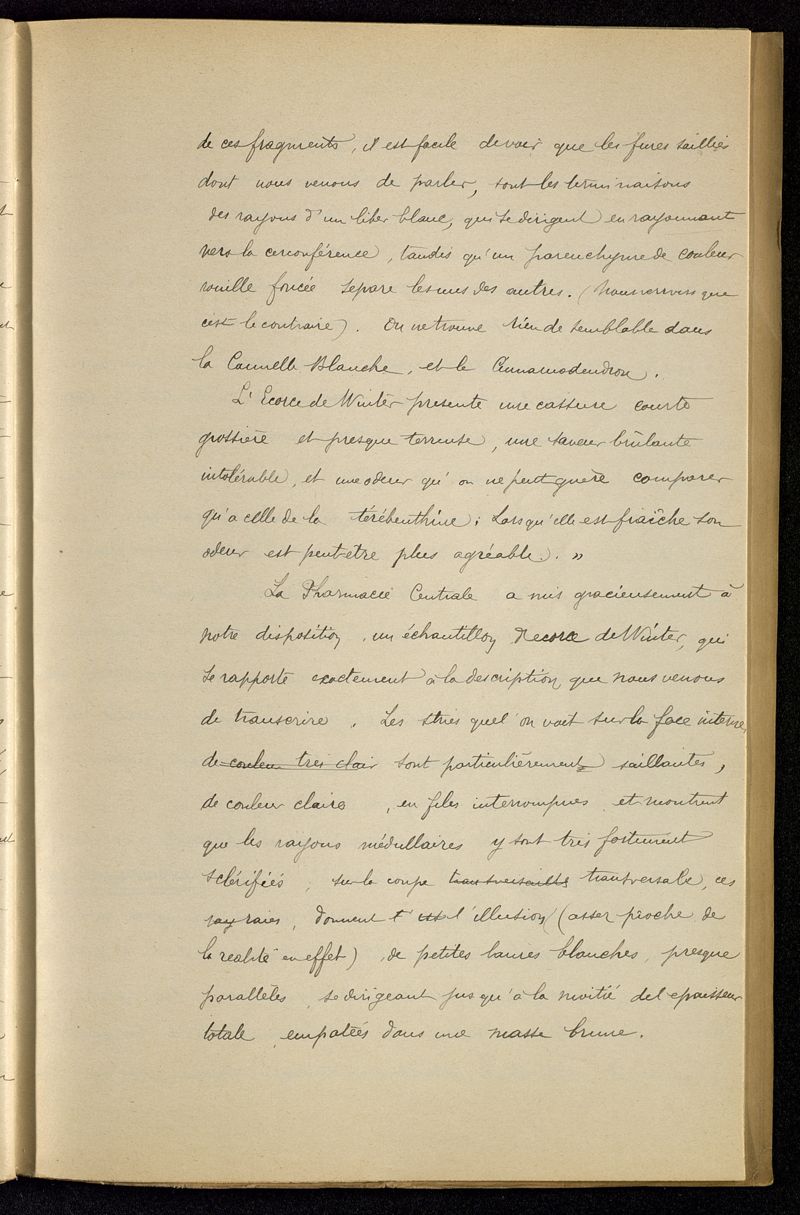 de ces fragments, il est facile de voir que les fines saillies
dont nous venons de parler, sont les terminaisons
des rayons d'un liber blanc, qui se dirigent en rayonnant
vers la circonférence, tandis qu'un parenchyme de couleur
rouille foncée sépare les uns des autres. (Nous verrons que
c'est le contraire). On ne trouve rien de semblable dans
la Cannelle Blanche, et le Cinnamodendron.
L'Ecorce de Winter présente une cassure courte
grossière et presque terreuse, une saveur brûlante
intolérable, et une odeur qu'on ne peut guère comparer
qu'a celle de la térébenthine; Lorsqu'elle est fraîche son
odeur est peut-etre plus agréable. »
La Pharmacie Centrale a mis gracieusement à
notre disposition, un échantillon d'ecorce de Winter, qui
se rapporte exactement à la description que nous venons
de transcrire. Les stries quel'on voit sur la face interne
de couleur tres clair sont particulièrement saillantes,
de couleur claire, en files interrompues et montrent
que les rayons médullaires y sont très fortement
sclérifiés; sur la coupe transversale transversale, ces
ray raies, donnent l'illusion (assez proche de
la realité en effet) de petites barres blanches, presque
parallèles se dirigeant jusqu'à la moitié del'epaisseur
totale empatées dans une masse brune.